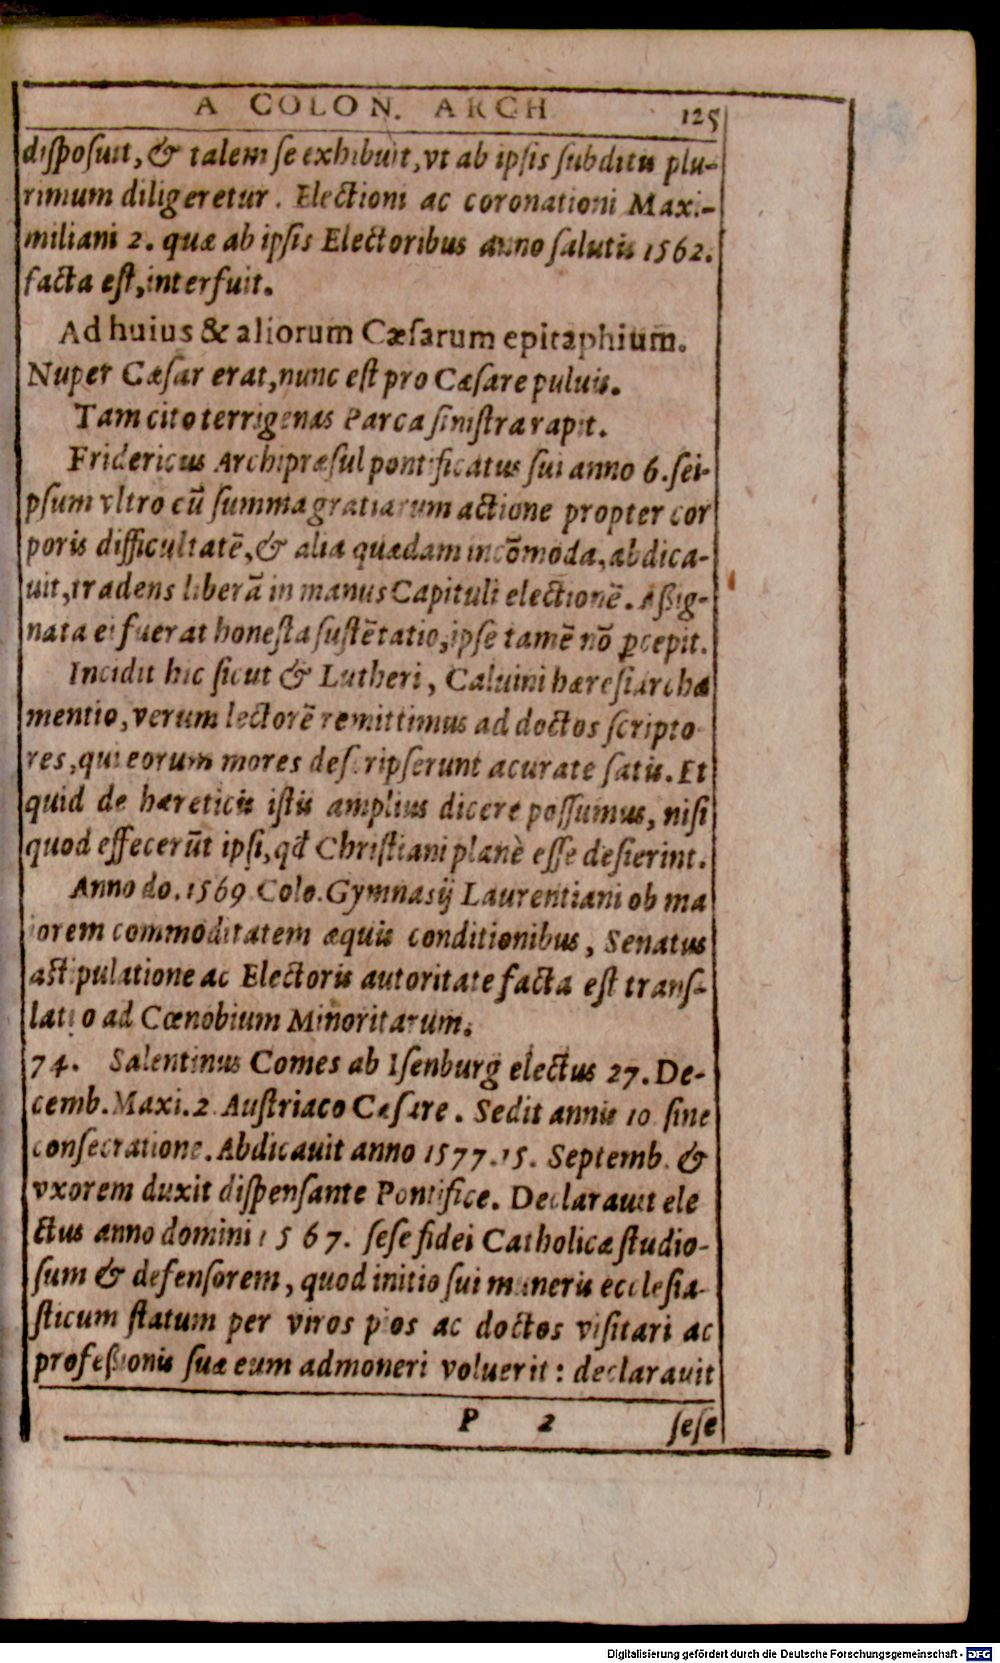 A COLON. ARCH 125
diſpoſuit, & talem ſe exhibuit, vt ab ipſis ſubditis plu-
rimum diligeretur. Electioni ac coronationi Maxi-
miliani 2. quæ ab ipſis Electoribus anno ſalutis 1562.
facta eſt, interfuit.
Ad huius & aliorum Cæſarum epitaphium.
Nuper Cæſar erat, nunc eſt pro Cæſare puluis.
Tam cito terrigenas Parca ſiniſtra rapit.
Fridericus Archipræſul pontificatus ſui anno 6. ſei-
pſum vltro cū ſumma gratiarum actione propter cor
poris difficultatē, & alia quædam incōmoda, abdica-
uit, tradens liberā in manus Capituli electionē. Aßig-
nata ei fuerat honeſta ſuſtētatio, ipſe tamē nō ꝑcepit.
Incidit hic ſicut & Lutheri, Caluini hæreſiarchæ
mentio, verum lectorē remittimus ad doctos ſcripto-
res, qui eorum mores deſcripſerunt acurate ſatis. Et
quid de hæreticis iſtis amplius dicere poſſumus, niſi
quod effecerūt ipſi, qđ Chriſtiani planè eſſe deſierint.
Anno do. 1569 Colo. Gymnasij Laurentiani ob ma
iorem commoditatem æquis conditionibus, Senatus
aſtipulatione ac Electoris autoritate facta eſt tranſ-
latio ad Cœnobium Minoritarum.
74. Salentinus Comes ab Iſenburg electus 27. De-
cemb. Maxi. 2 Auſtriaco Cæſare. Sedit annis 10 ſine
conſecratione. Abdicauit anno 1577. 15. Septemb. &
vxorem duxit diſpenſante Pontifice. Declarauit ele
ctus anno domini 1567. ſeſe fidei Catholicæ ſtudio-
ſum & defenſorem, quod initio ſui muneris eccleſia-
ſticum ſtatum per viros pios ac doctos viſitari ac
profeßionis ſuæ eum admoneri voluerit: declarauit
P 2 ſeſe
Digitalisierung gefördert durch die Deutsche Forschungsgemeinschaft - DFG